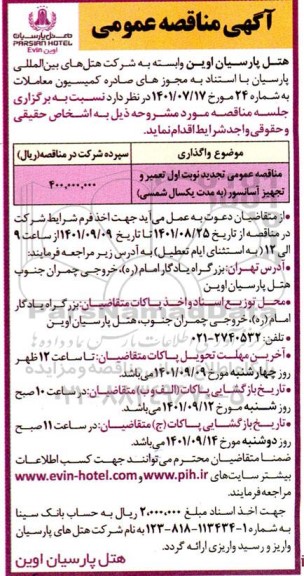 آگهی مناقصه عمومی
هتل پارسیان
PARSIAN HOTEL
اوین Evin
هتل پارسیان اوین وابسته به شرکت هتل‌های بین‌المللی
پارسیان با استناد به مجوز های صادره کمیسیون معاملات
به شماره ۲۴ مورخ ۱۴۰۱/۰۷/۱۷ در نظر دارد نسبت به برگزاری
جلسه مناقصه مورد مشروحه ذیل به اشخاص حقیقی
و حقوقی واجد شرایط اقدام نماید.
موضوع واگذاری
سپرده شرکت در مناقصه (ریال)
مناقصه عمومی تجدید نوبت اول تعمیر و
تجهیز آسانسور (به مدت یکسال شمسی)
۴۰۰,۰۰۰,۰۰۰
•از متقاضیان دعوت به عمل می آید جهت اخذ فرم شرایط شرکت
در مناقصه از تاریخ ۱۴۰۱/۰۸/۲۵ تا تاریخ ۱۴۰۱/۰۹/۰۹ از ساعت ۹
الی ۱۲ (به استثنای ایام تعطیل) به آدرس زیر مراجعه فرمایند:
•آدرس تهران: بزرگراه یادگار امام (ره)، خروجی چمران جنوب
هتل پارسیان اوین
•محل توزیع اسناد و اخذ پاکات متقاضیان: بزرگراه یادگار
امام (ره)، خروجی چمران جنوب، هتل پارسیان اوین
•تلفن: ۲۷۴۰۵۳۲-۰۲۱
•آخرین مهلت تحویل پاکات متقاضیان: تا ساعت ۱۲ ظهر
روز چهارشنبه مورخ ۱۴۰۱/۰۹/۰۹ می‌باشد.
•تاریخ بازگشایی پاکات (الف و ب) متقاضیان: در ساعت ۱۰ صبح
روز شنبه مورخ ۱۴۰۱/۰۹/۱۲ می‌باشد.
•تاریخ بازگشایی پاکات (ج) متقاضیان: در ساعت ۱۱ صبح
روز دوشنبه مورخ ۱۴۰۱/۰۹/۱۴ می‌باشد.
ضمنا متقاضیان محترم می‌توانند جهت کسب اطلاعات
بیشتر سایت‌های www.pih.ir و www.evin-hotel.com
مراجعه فرمایند.
جهت اخذ اسناد مبلغ ۲,۰۰۰,۰۰۰ ریال به حساب بانک سینا
به شماره ۱-۱۱۳۴۳۴-۸۱۸-۱۲۳ به نام شرکت هتل های پارسیان
واریز و رسید واریزی ارائه گردد.
هتل پارسیان اوین